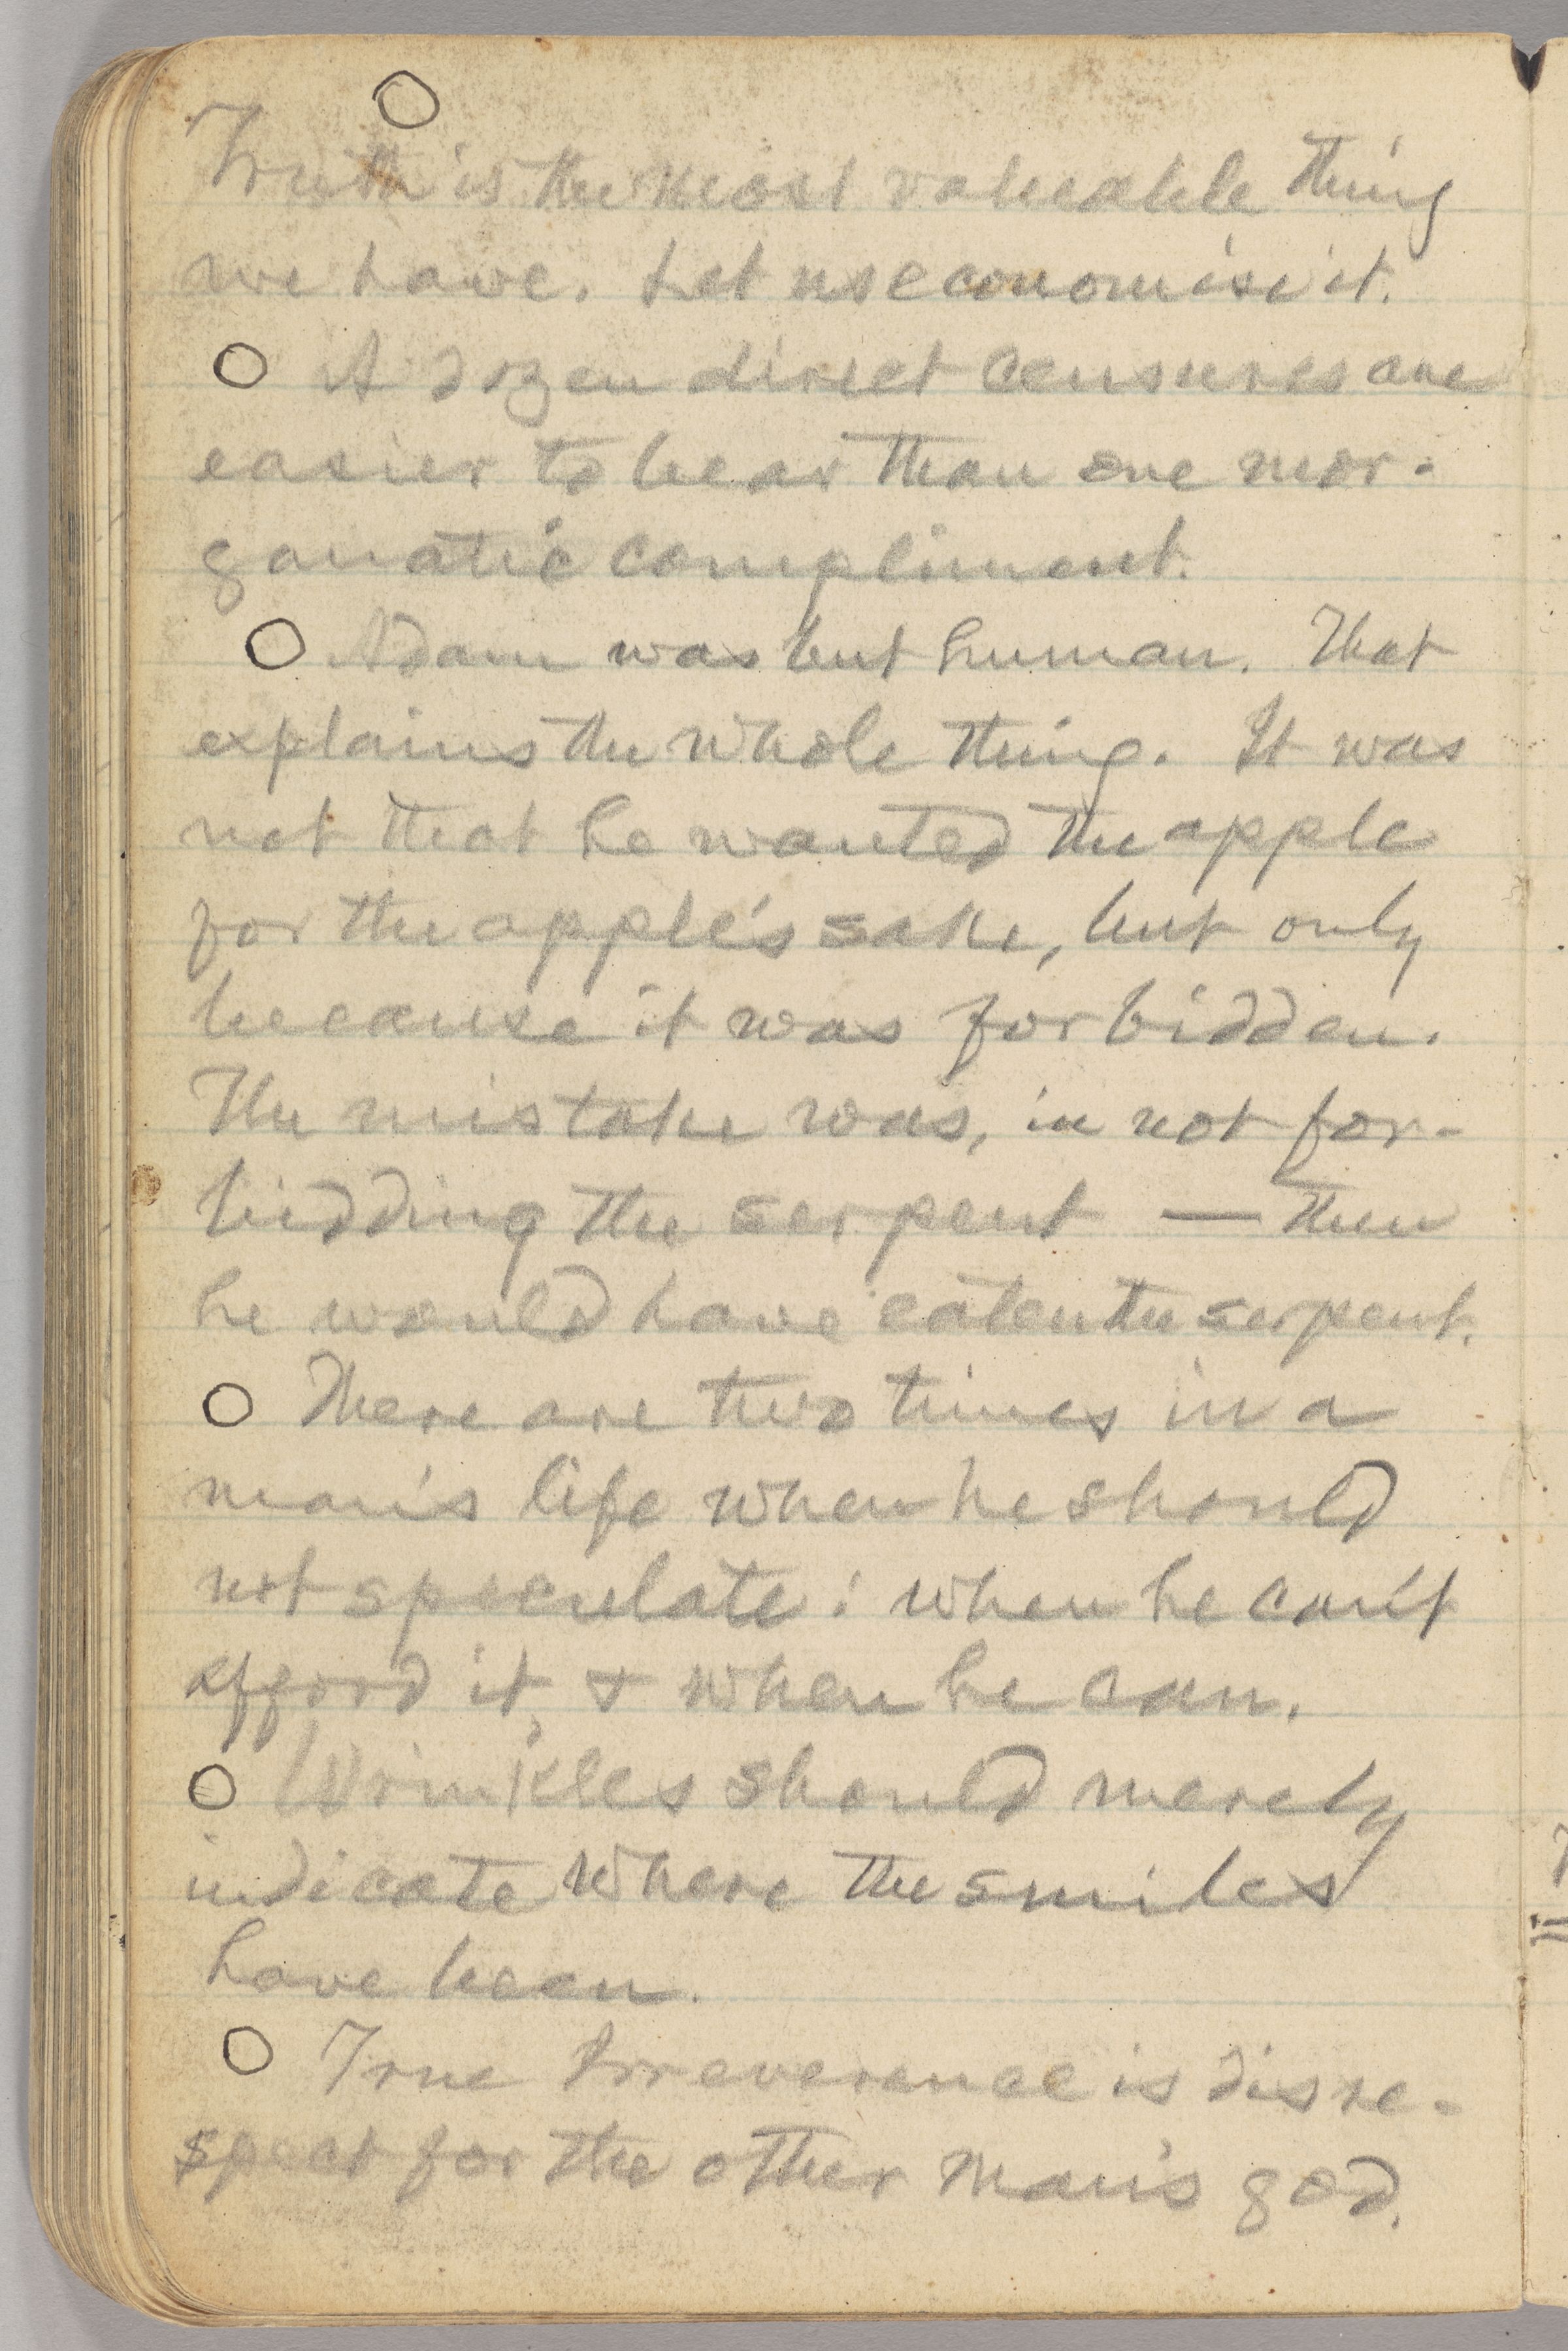 Truth is the most valuable thing
we have. Let us economise it.
A dozen direct censures are
easier to bear than one mor-
ganatic compliment.
Adam was but human. That
explains the whole thing. It was
not that he wanted the apple
for the apple's sake, but only
because it was forbidden.
The mistake was, in not for-
bidding the serpent — then
he would have eaten the serpent.
There are two times in a
man's life when he should
not speculate: when he can't
afford it, & when he can.
Wrinkles should merely
indicate where the smiles
have been.
True Irreverence is disre-
spect for the other man's god.